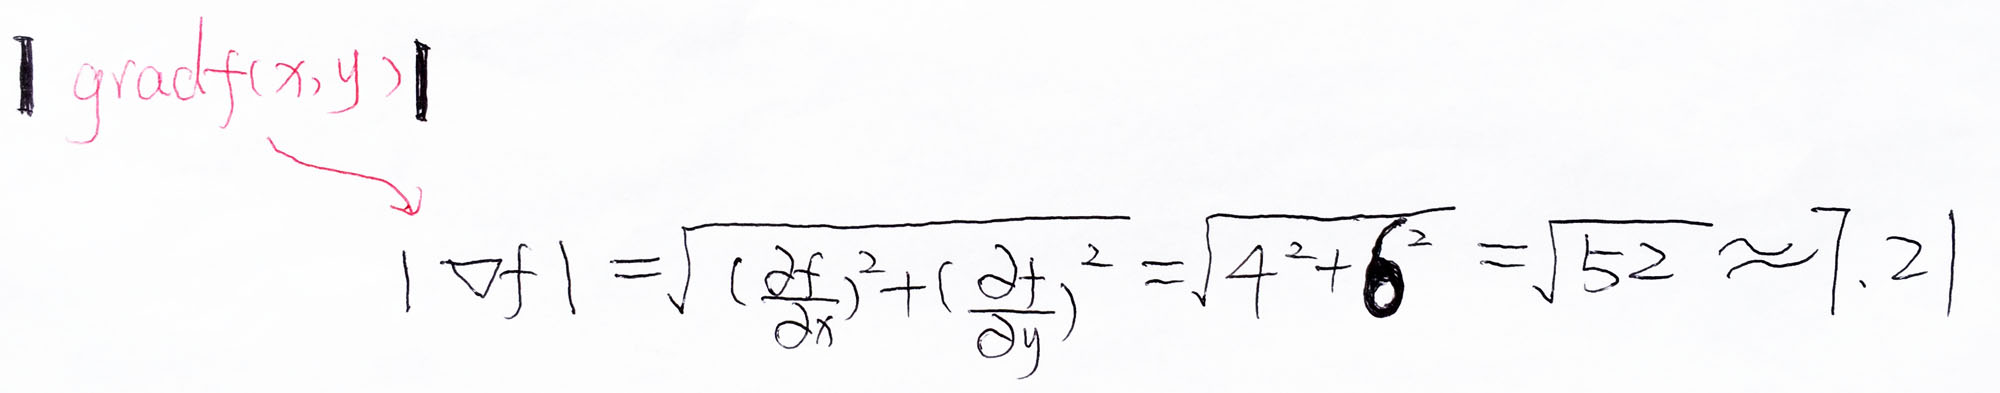 | gradf(x,y) |
|∇f| = √((∂f/∂x)² + (∂f/∂y)²) = √(4² + 6²) = √52 ≈ 7.21